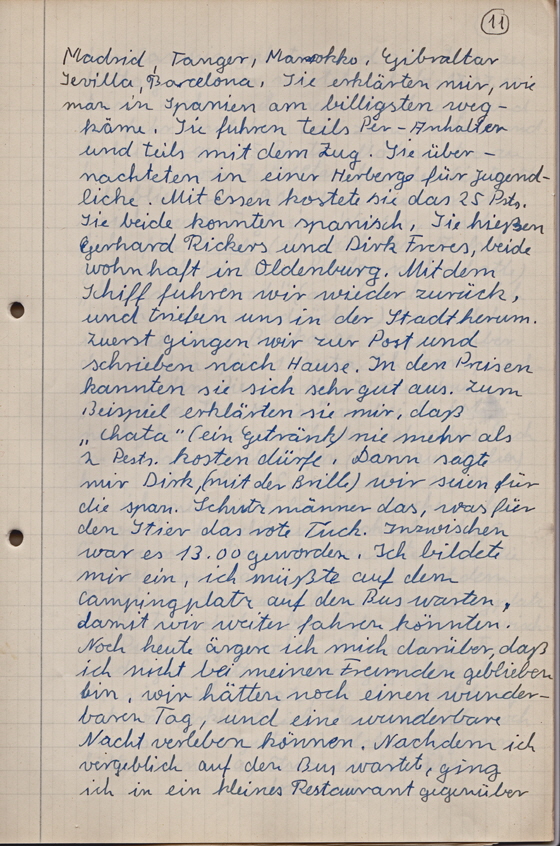 11
Madrid, Tanger, Marokko, Gibraltar
Sevilla, Barcelona. Sie erklärten mir, wie
man in Spanien am billigsten weg-
käme. Sie fuhren teils Per-Anhalter
und teils mit dem Zug. Sie über-
nachteten in einer Herberge für Jugend-
liche. Mit Essen kostete sie das 25 Psts.
Sie beide konnten spanisch, Sie hießen
Gerhard Rickers und Dirk Freres, beide
wohnhaft in Oldenburg. Mit dem
Schiff fuhren wir wieder zurück,
und trieben uns in der Stadt herum.
Zuerst gingen wir zur Post und
schrieben nach Hause. In den Preisen
kannten sie sich sehr gut aus. Zum
Beispiel erklärten sie mir, daß
„Chata" (ein Getränk) nie mehr als
2 Pests. kosten dürfe. Dann sagte
mir Dirk, (mit der Brille) wir seien für
die span. Schutzmänner das, was für
den Stier das rote Tuch. Inzwischen
war es 13.00 geworden. Ich bildete
mir ein, ich müßte auf dem
Campingplatz auf den Bus warten,
damit wir weiter fahren könnten.
Noch heute ärgere ich mich darüber, daß
ich nicht bei meinen Freunden geblieben
bin, wir hätten noch einen wunder-
baren Tag, und eine wunderbare
Nacht verleben können. Nachdem ich
vergeblich auf den Bus wartet, ging
ich in ein kleines Restaurant gegenüber